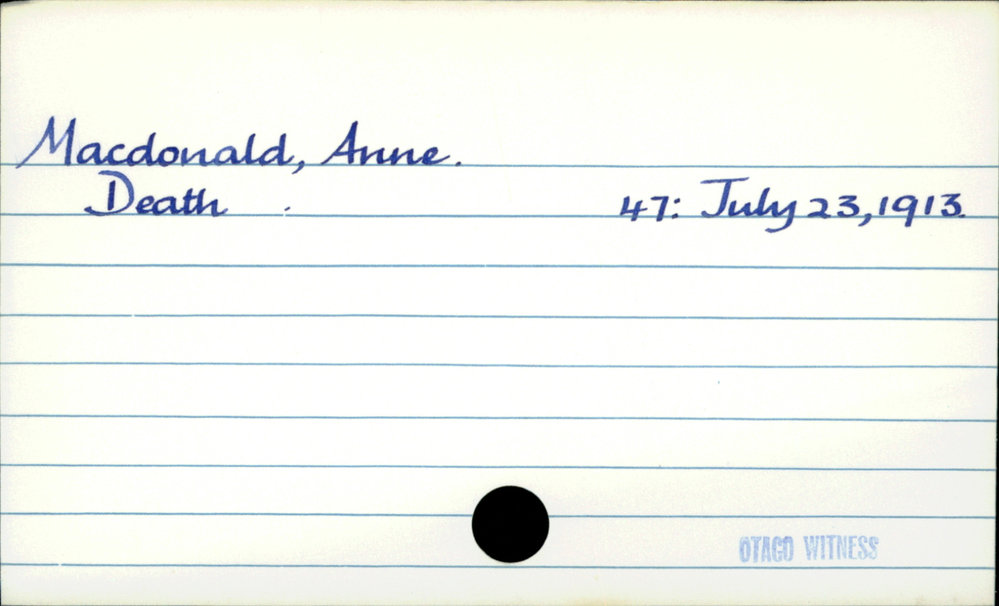 Macdonald, Anne.
Death . 47: July 23, 1913.
OTAGO WITNESS